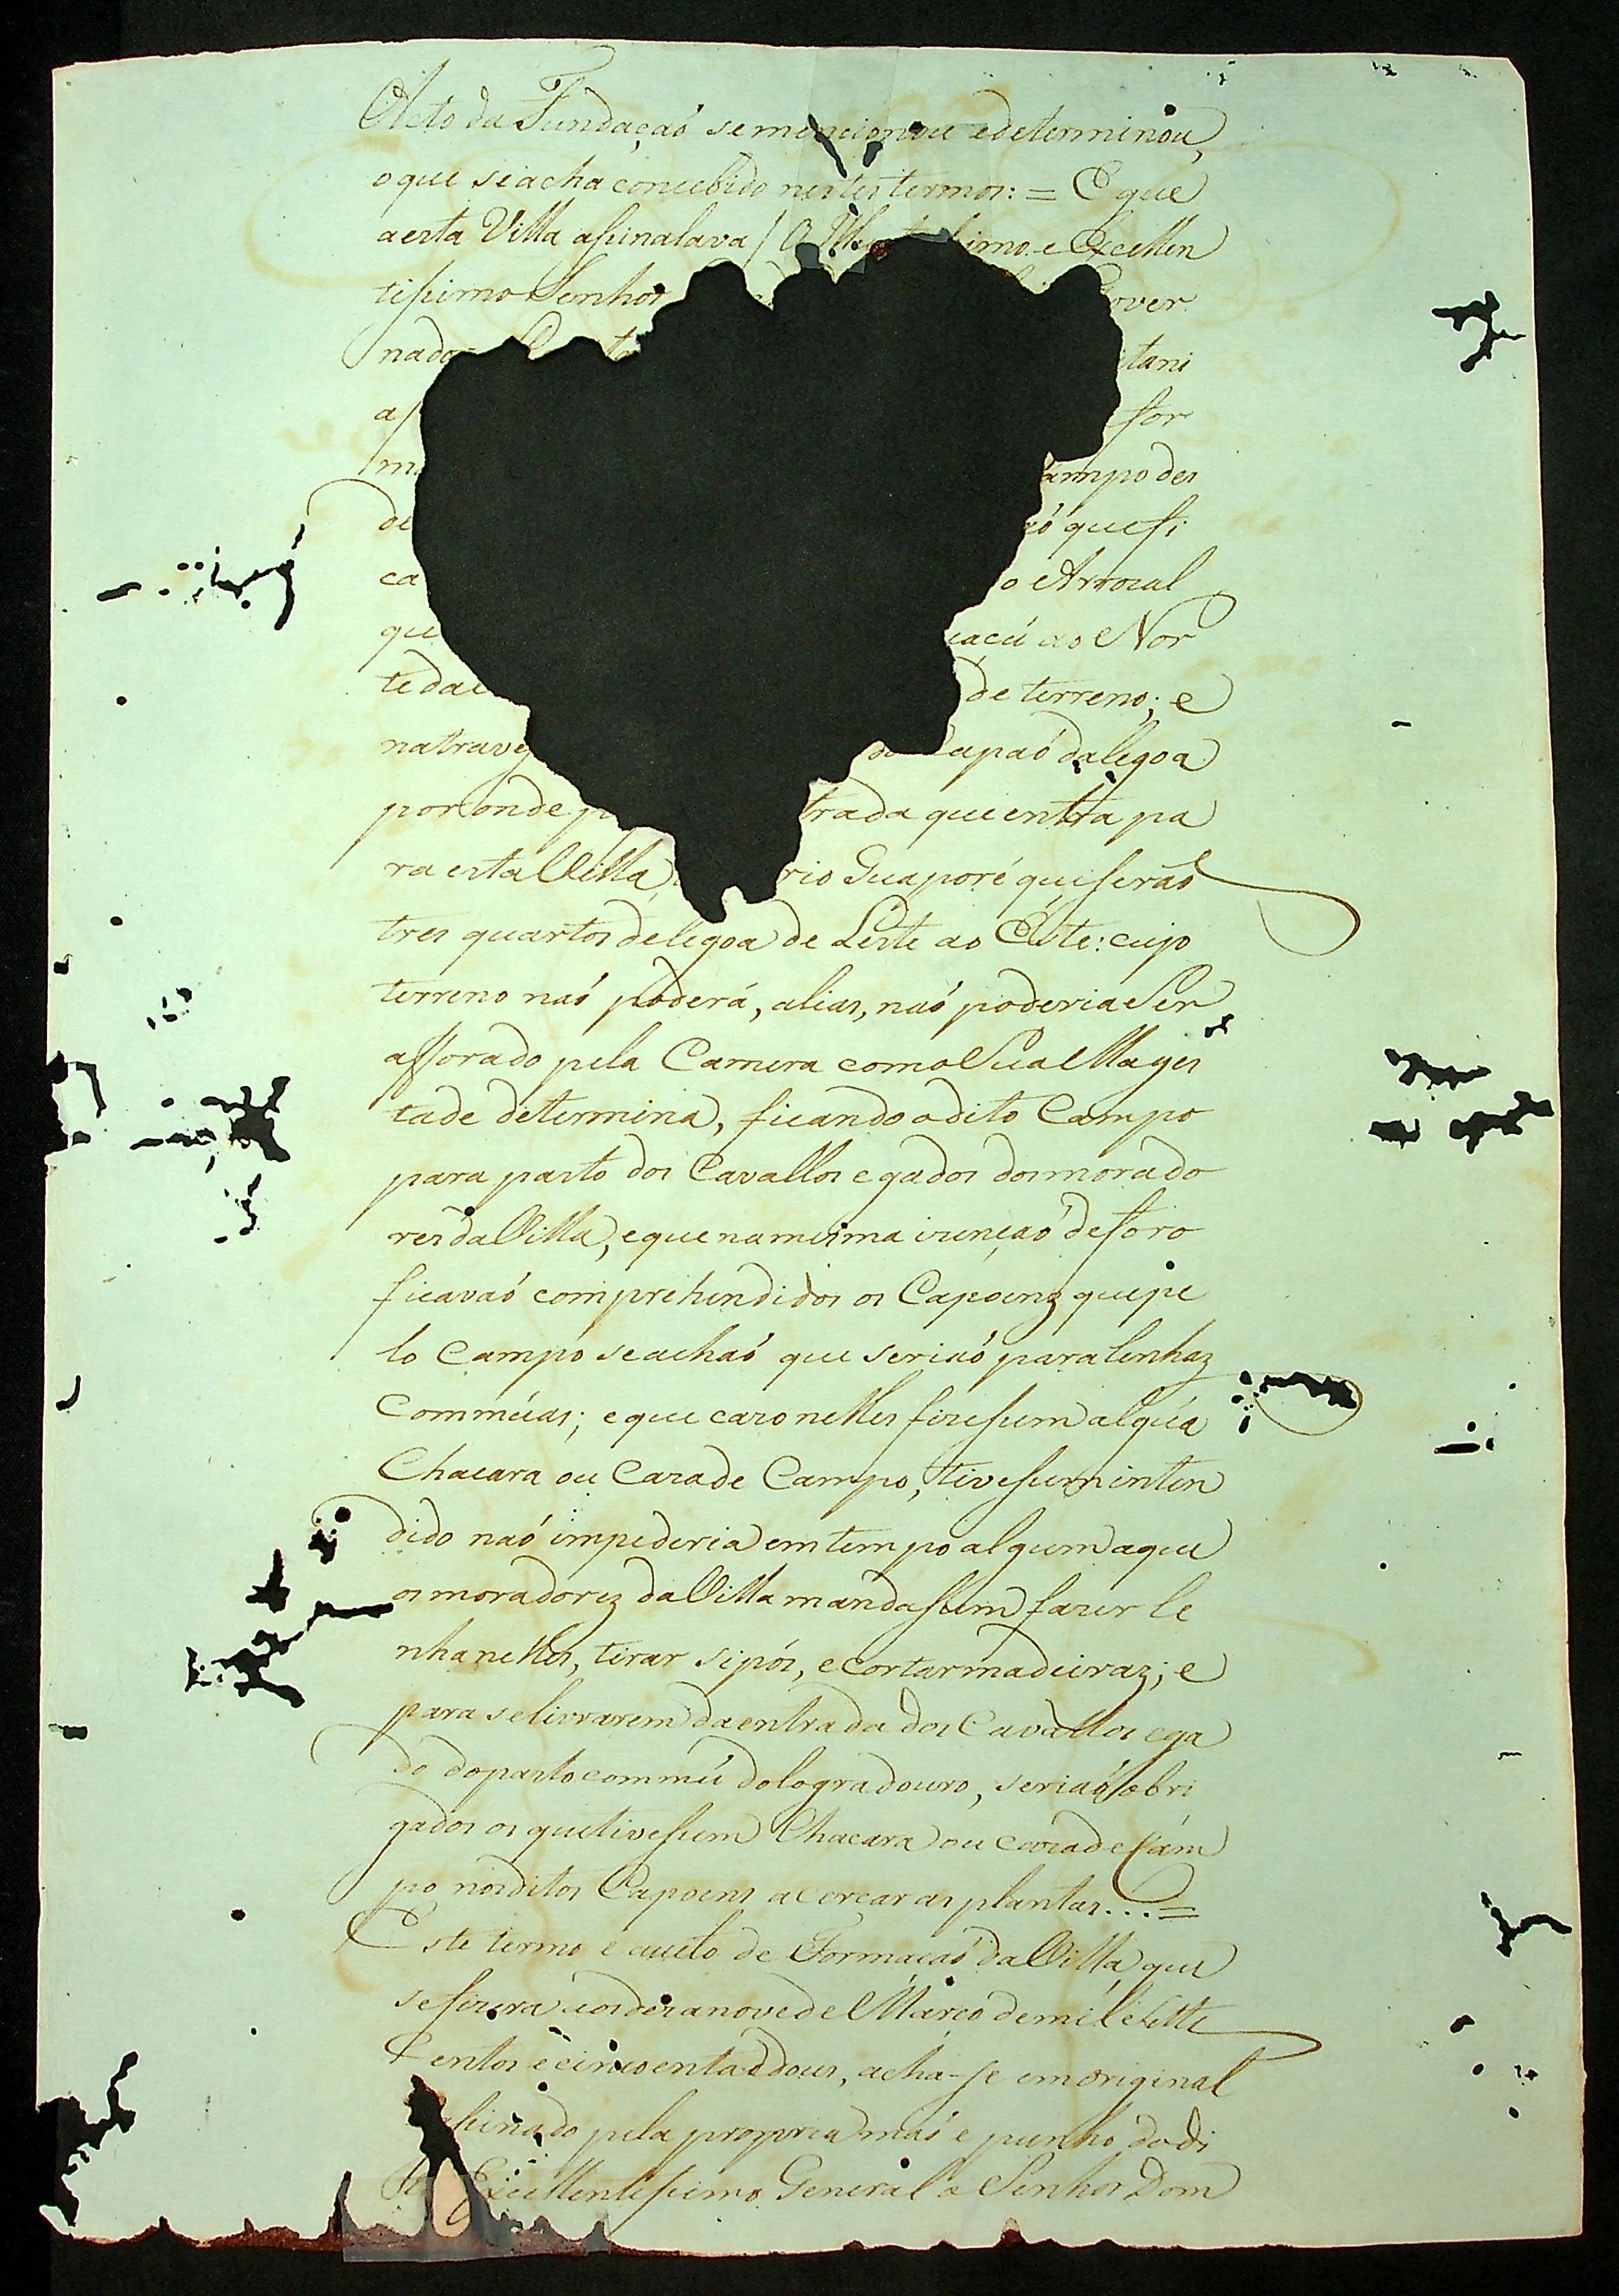 Acto da Fundaçaõ se mencionou e determinou,
o que se acha concebido nestes termos: = E que
a esta Villa assinalava / O Ill simo e Excellen
tissimo Senhor Gover
nador tani
a for
ma ampo des
de que fi
ca o Arraial
que uaçú ao Nor
te da de terreno; e
na trave do Capaõ da legoa
por onde trada que entra pa
ra esta Villa, rio Guaporé que seraõ
tres quartos de legoa de Leste ao Éste: cujo
terreno naó poderá, alias, naó poderia Ser
afforado pela Camera como Sua Mages
tade determina, ficando o dito Campo
para pasto dos Cavallos e gados dos morado
res da Villa, e que na mesma izençaó de foro
ficavaó comprehendidos os Capoenz que pe
lo Campo se achaó que seriaó para lenhaz
Commúas; e que cazo nelles fizessem algúa
Chacara ou Caza de Campo, tivessem inten
dido naó impederia em tempo algum a que
os moradorez da Villa mandassem fazer le
nha nelles, tirar sipós, e cortar madeiraz; e
para se livrarem da entrada dos Cavallos e ga
do do pasto commú do logradouro, seriaó obri
gados os que tivessem Chacara ou caza de Cam
po nos ditos Capoens a cercar as plantas... =
Este termo e aucto de Formaçaó da Villa que
se fizera aos dezanove de Março de mil e sette
centos e cincoenta e dous, acha-se em original
assinado pela propria maó e punho do di
to Excellentissimo General o Senhor Dom